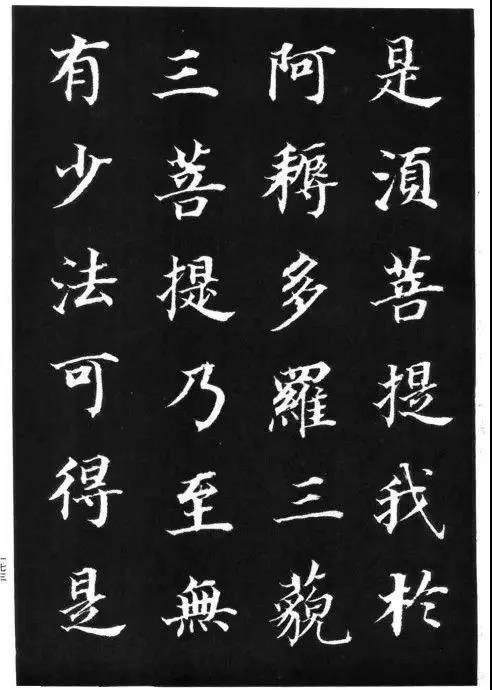 是湏菩提我於
阿耨多羅三藐
三菩提乃至無
有少法可得是
一七三